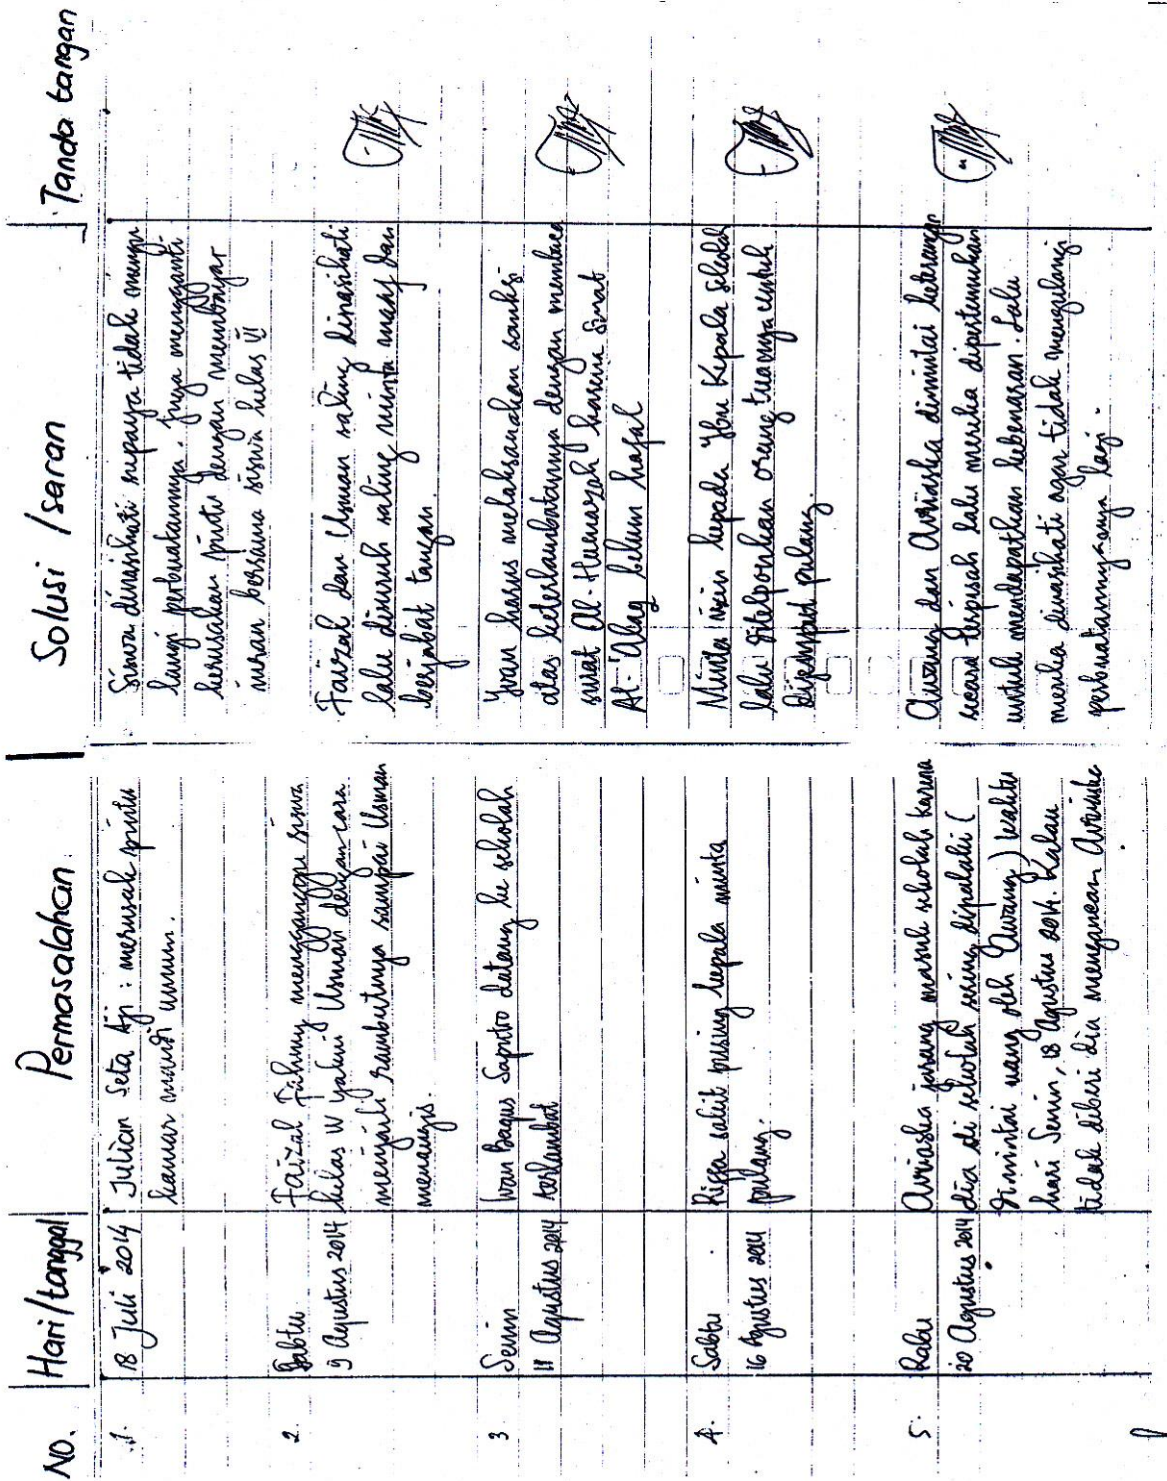 NO. Hari/tanggal Permasalahan Solusi / saran Tanda tangan
1. 18 Juli 2014 Julian Seta Aji : merusak pintu
kamar mandi umum.
Siswa dinasihati supaya tidak mengu
langi perbuatannya. Juga mengganti
kerusakan pintu dengan membayar
iuran bersama siswa kelas VI
2. Sabtu
9 Agustus 2014
Faizal Fahmy mengganggu siswa
kelas IV yakni Usman dengan cara
menjambutnya sampai Usman
menangis.
Faizal dan Usman saling dinasihati
lalu disuruh saling minta maaf dan
berjabat tangan
3 Senin
11 Agustus 2014
Ivan Bagus Saputro datang ke sekolah
terlambat
Ivan harus melaksanakan sanksi
atas keterlambatannya dengan membaca
surat Al-Humazah karena surat
Al-'Alaq belum hafal
4. Sabtu
16 Agustus 2014
Rissa sakit pusing kepala minta
pulang.
Minta izin kepada Ibu Kepala Sekolah
lalu ditelponkan orang tuanya untuk
Dijemput pulang.
5. Rabu
20 Agustus 2014
jarang masuk sekolah karena
dia di sekolah sering dipalaki (
Dimintai uang oleh Awang) waktu
hari Senin, 18 Agustus 2014. Kalau
tidak diberi dia mengancam
Awang dan dimintai keterangan
secara terpisah lalu mereka dipertemukan
untuk mendapatkan kebenaran. Lalu
mereka dinasihati agar tidak mengulangi
perbuatannya lagi.